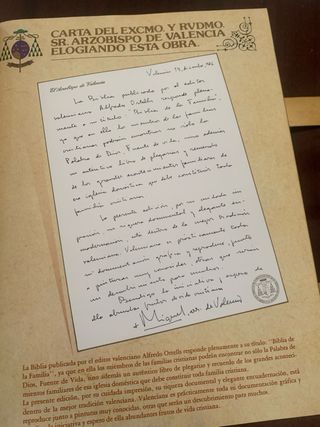 CARTA DEL EXCMO. Y RVDMO.
SR. ARZOBISPO DE VALENCIA
ELOGIANDO ESTA OBRA.
El Arzobispo de Valencia
Valencia
La Biblia publicada por el editor
valenciano Alfredo Ortells responde plena-
mente a su título: "Biblia de la Familia",
ya que en ella los miembros de las familias
cristianas podrán encontrar no sólo la
Palabra de Dios, Fuente de Vida, sino además
un auténtico libro de plegarias y recuerdo
de los grandes acontecimientos familiares de
su iglesia doméstica que debe constituir toda
familia cristiana.
La presente edición, por su cuidada im-
presión, su riqueza documental y elegante en-
cuadernación, está dentro de la mejor tradición
valenciana. Valenciana es prácticamente toda
su documentación gráfica y reproduce, junto
a pinturas muy conocidas, otras que serán
un descubrimiento para muchos.
Bendigo la iniciativa y espero de
ella abundantes frutos de vida cristiana.
+ Miguel, arz. de Valencia
La Biblia publicada por el editor valenciano Alfredo Ortells responde plenamente a su título: "Biblia de
la Familia", ya que en ella los miembros de las familias cristianas podrán encontrar no sólo la Palabra de
Dios, Fuente de Vida, sino además un auténtico libro de plegarias y recuerdo de los grandes aconteci-
mientos familiares de su iglesia doméstica que debe constituir toda familia cristiana.
La presente edición, por su cuidada impresión, su riqueza documental y elegante encuadernación, está
dentro de la mejor tradición valenciana. Valenciana es prácticamente toda su documentación gráfica y
reproduce junto a pinturas muy conocidas, otras que serán un descubrimiento para muchos.
la iniciativa y espero de ella abundantes frutos de vida cristiana.